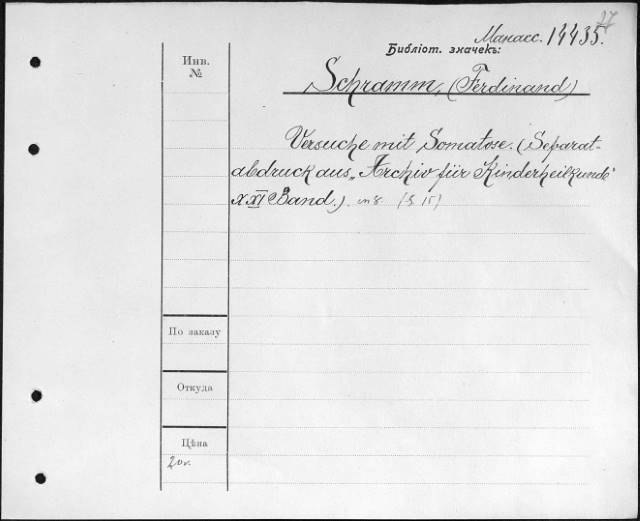 27
Манасс. 14435.
Библіот. значекъ:
Инв.
№
Schramm, (Ferdinand)
Versuche mit Somatose. (Separat-
abdruck aus „Archiv für Kinderheilkunde"
XXI Band.). in 8. (S. 15)
По заказу
Откуда
Цѣна